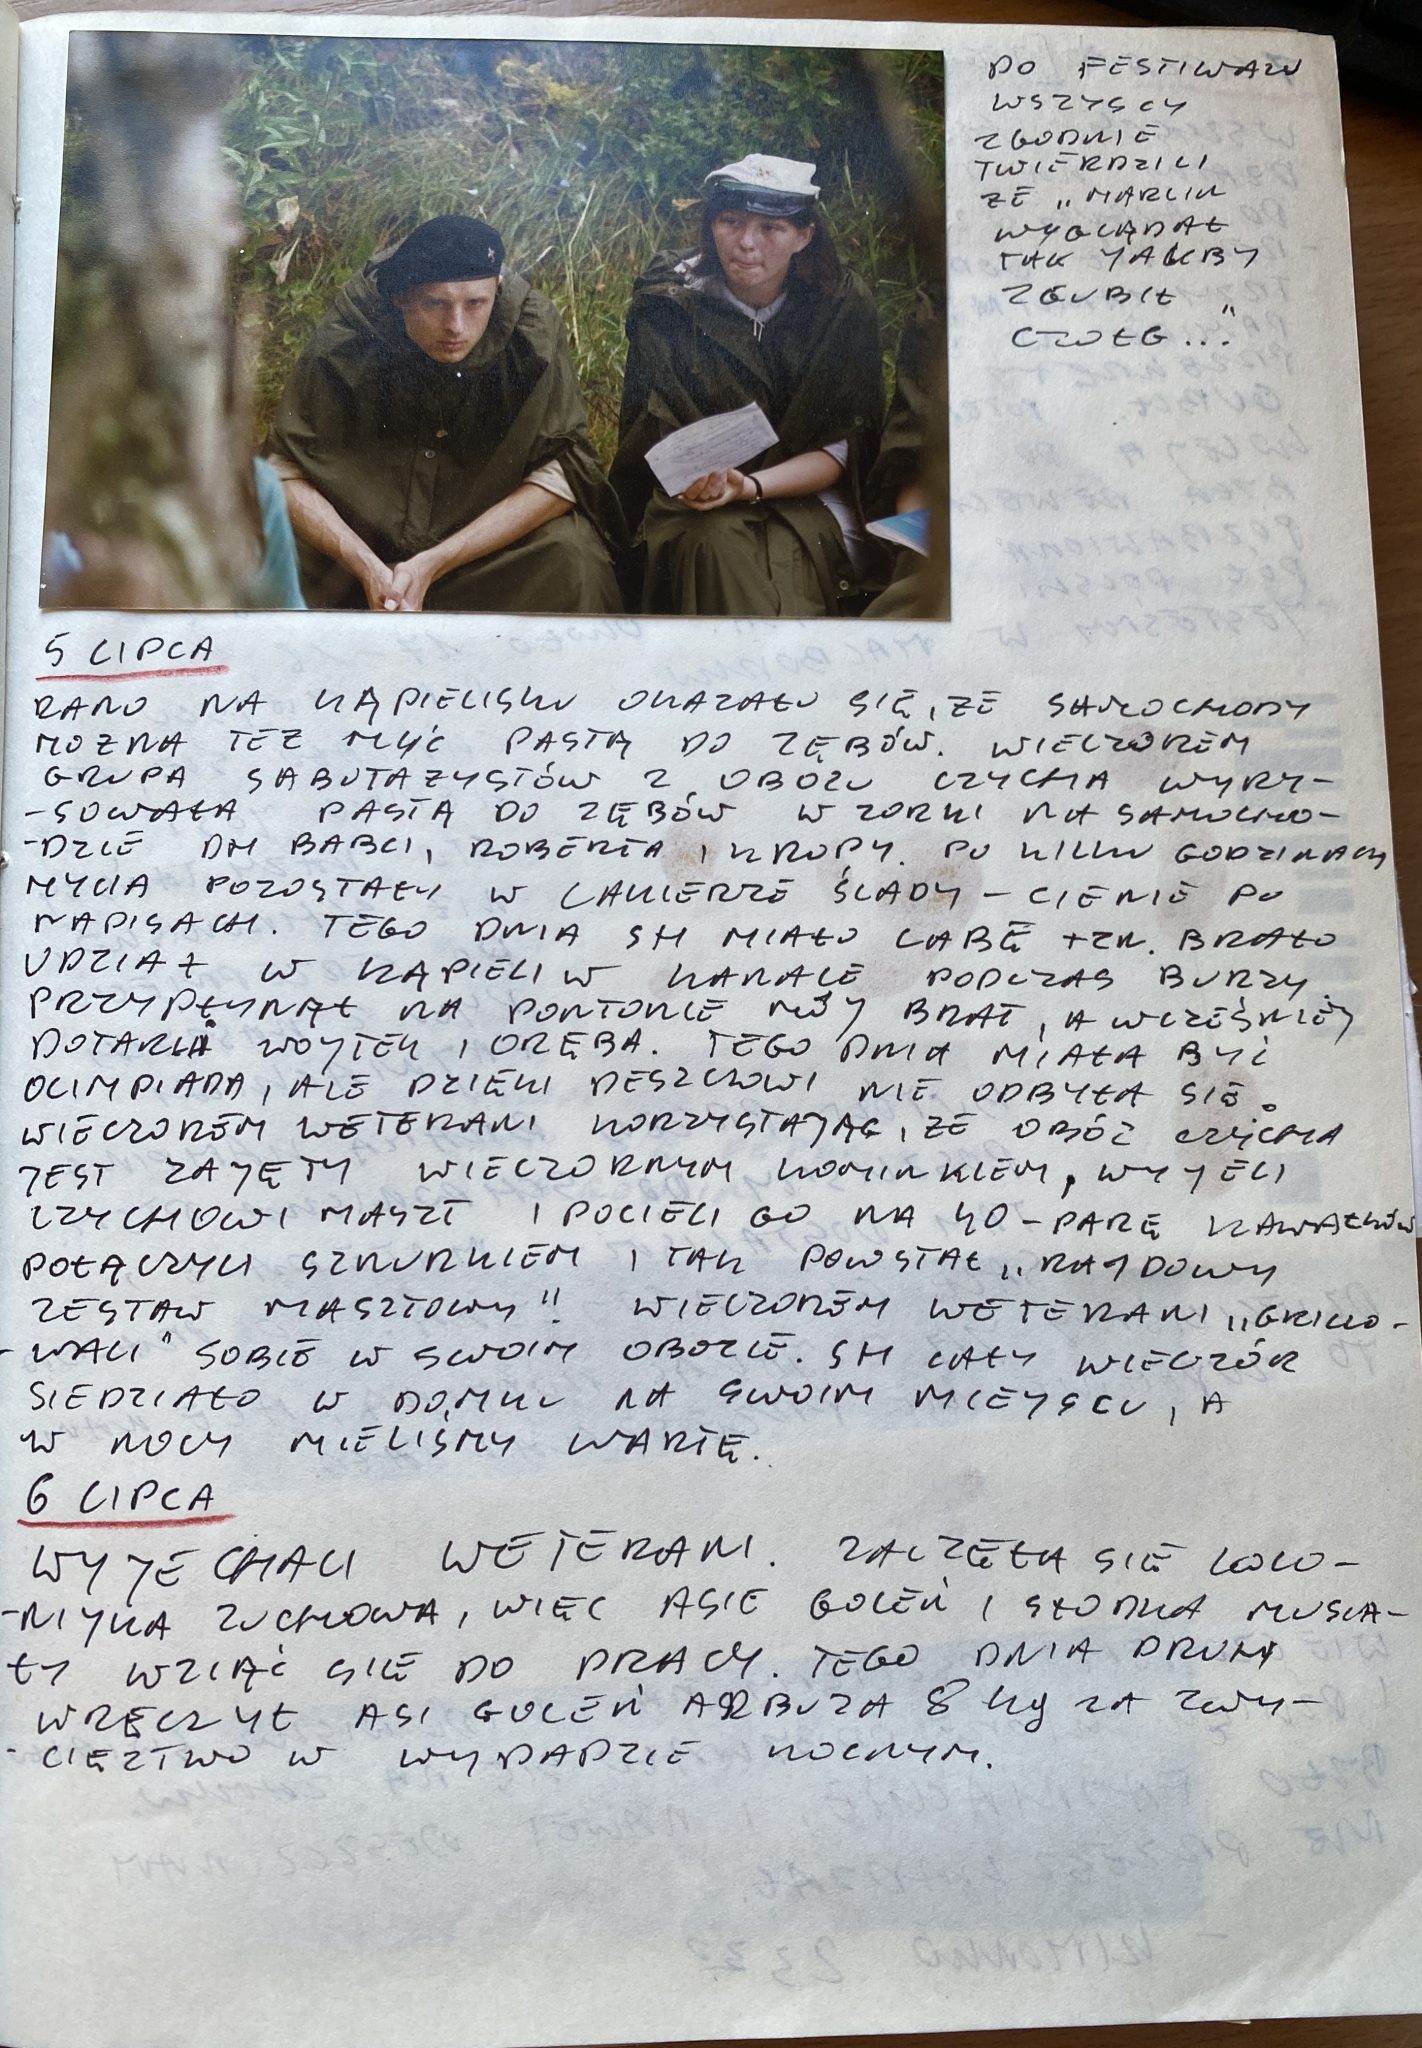 DO FESTIWALU
WSZYSCY
ZGODNIE
TWIERDZILI
ZE „MARCIN
WYGLĄDAŁ
TAK YAKBY
ZGUBIŁ
CZOŁG..."
5 LIPCA
RANO NA KĄPIELISKU OKAZAŁO SIĘ, ZE SAMOCHODY
MOZNA TEZ MYĆ PASTĄ DO ZĘBÓW. WIECZOREM
GRUPA SABOTAZYSTÓW Z OBOZU CZYCHA WYRY-
-SOWAŁA PASTĄ DO ZĘBÓW WZORKI NA SAMOCHO-
-DZIE DH BABCI, ROBERTA I KROPY. PO KILKU GODZINACH
MYCIA POZOSTAŁY W LAKIERZE ŚLADY - CIENIE PO
NAPISACH. TEGO DNIA SH MIAŁO LABĘ TZN. BRAŁO
UDZIAŁ W KĄPIELI W KANALE PODCZAS BURZY
PRZYPŁYNĄŁ NA PONTONIE MÓY BRAT, A WCZEŚNIEY
DOTARLI WOYTEK I ORĘBA. TEGO DNIA MIAŁA BYĆ
OLIMPIADA, ALE DZIĘKI DESZCZOWI NIE ODBYŁA SIĘ.
WIECZOREM WETERANI KORZYSTAYĄC, ZE OBÓZ CZYCHA
YEST ZAYĘTY WIECZORNYM KOMINKIEM, WYYELI
CZYCHOWI MASZT I POCIELI GO NA 40-PARĘ KAWAŁKÓW
POŁĄCZYLI SZNURKIEM I TAK POWSTAŁ „RAYDOWY
ZESTAW MASZTOWY" WIECZOREM WETERANI „GRILLO-
-WALI" SOBIE W SWOIM OBOZIE. SH CAŁY WIECZÓR
SIEDZIAŁO W DOMKU NA SWOIM MIEYSCU, A
W NOCY MIELIŚMY WARTĘ.
6 LIPCA
WYYECHALI WETERANI. ZACZĘŁA SIĘ KOLO-
-NIYKA ZUCHOWA, WIĘC ASIE GOLEŃ I SŁODKA MUSIA-
ŁY WZIĄĆ SIĘ DO PRACY. TEGO DNIA DRUHY
WRĘCZYŁ ASI GOLEŃ ARBUZA 8 kg ZA ZWY-
-CIĘZTWO W WYPADZIE NOCNYM.